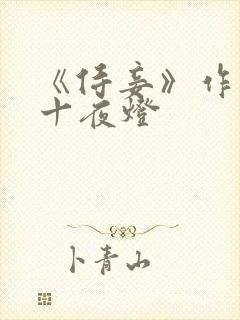 《侍妾》作
十夜燈
卜青山